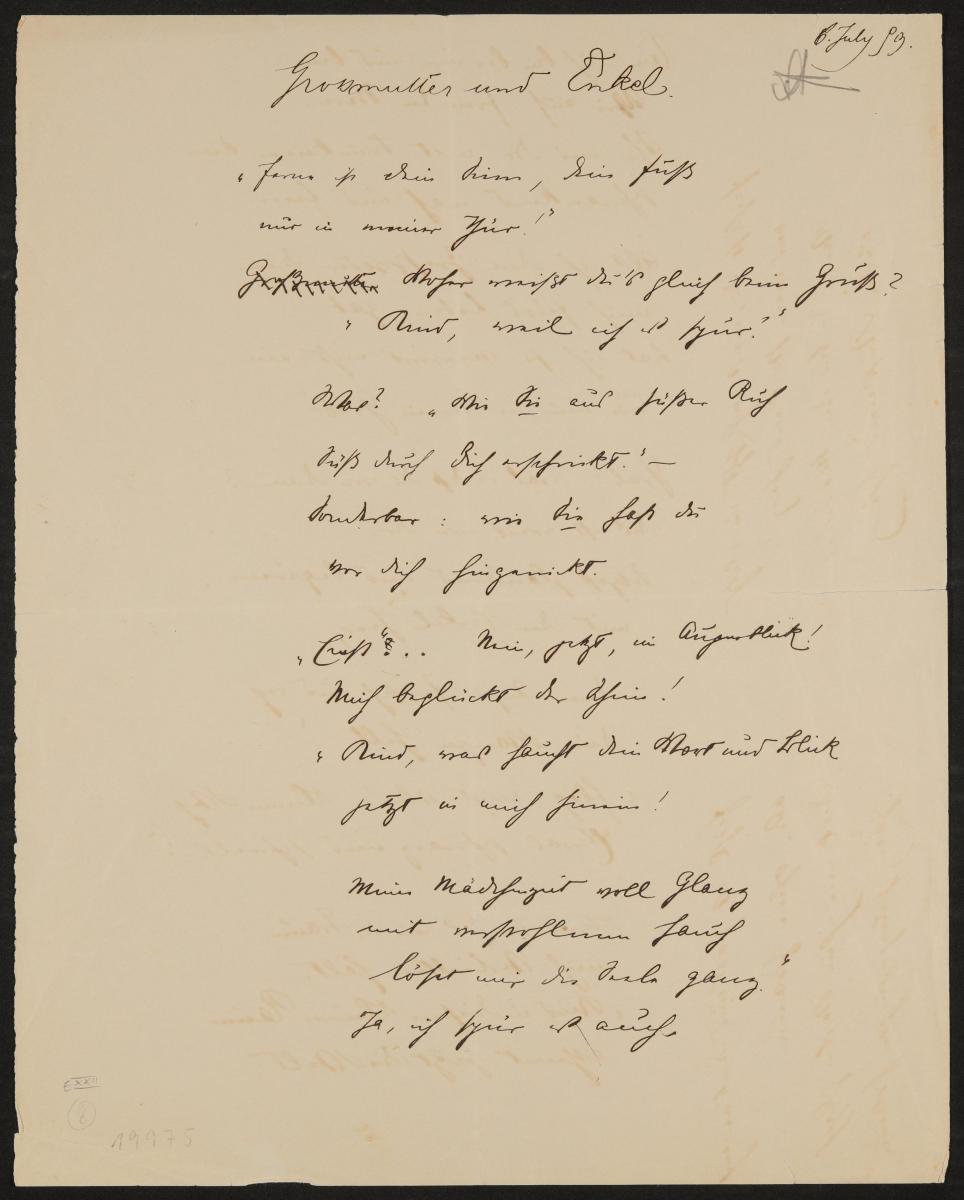 6. July 99.
Großmutter und Enkel.
„Ferne ist dein Sinn, dein Fuß
nur in meiner Thür!"
Großmutter Woher weißt du's gleich beim Gruß?
„Kind, weil ich es spür."
Was? „Wie Sie aus süßer Ruh
Süß durch Dich erschrickt." –
Sonderbar: wie Sie hast du
vor dich hingenickt.
„Einst"... Nein, jetzt, im Augenblick!
Mich beglückt der Schein!
„Kind, was haucht dein Wort und Blick
jetzt in mich hinein!
Meine Mädchenzeit voll Glanz
mit verstohlenem Hauch
löst mir die Seele ganz."
Ja, ich spür es auch.
E XXII
19975